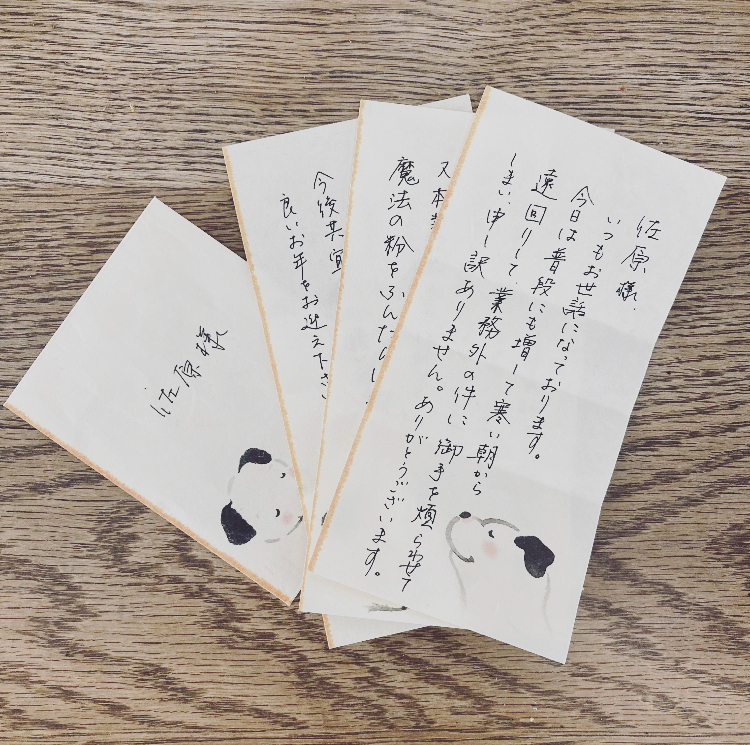 佐原様
いつもお世話になっております。
今日は普段にも増して寒い朝から
遠回りして業務外の件に御手を煩らわせて
しまい申し訳ありません。ありがとうございます。
又本
魔法の粉をふんだんに
今後共宜
良いお年をお迎えくださ
佐原様